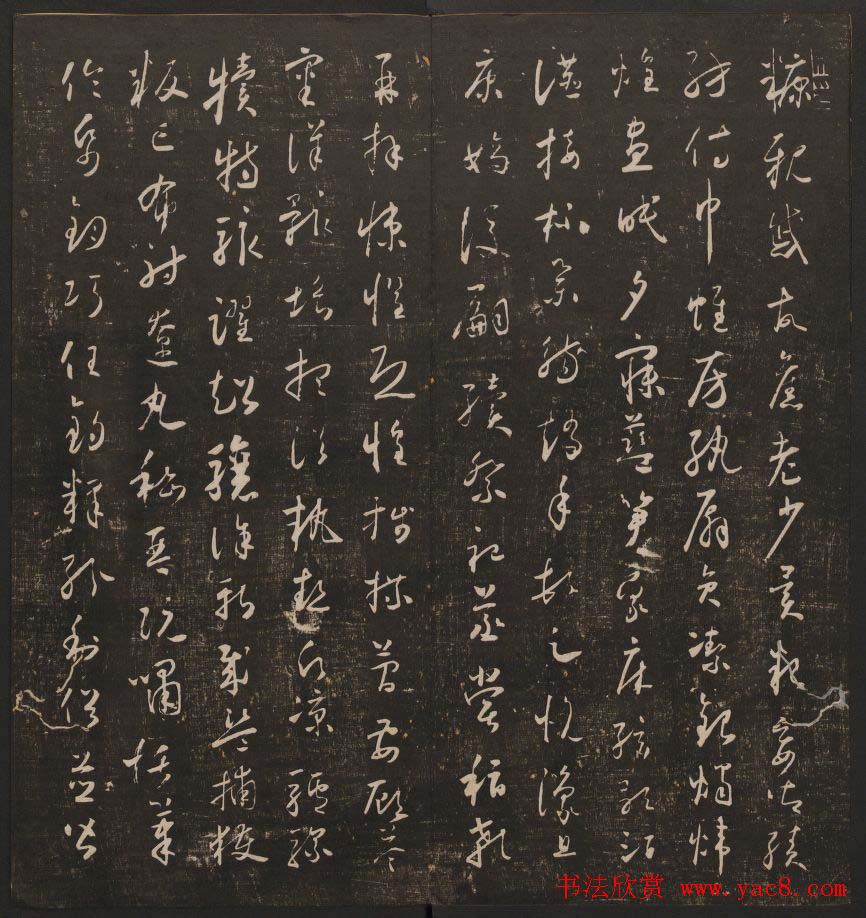 糠親戚故舊老少異糧妾御績
紡侍巾帷房紈扇員潔銀燭煒
煌晝眠夕寐藍笋象床絃歌酒
讌接杯舉觴矯手頓足悅豫且
康嫡後嗣續祭祀蒸嘗稽顙
再拜悚懼恐惶牋牒簡要顧答
審詳骸垢想浴執熱願涼驢騾
犢特駭躍超驤誅斬賊盜捕獲
叛亡布射遼丸嵇琴阮嘯恬筆
倫紙鈞巧任釣釋紛利俗並皆
书法欣赏 www.yac8.com